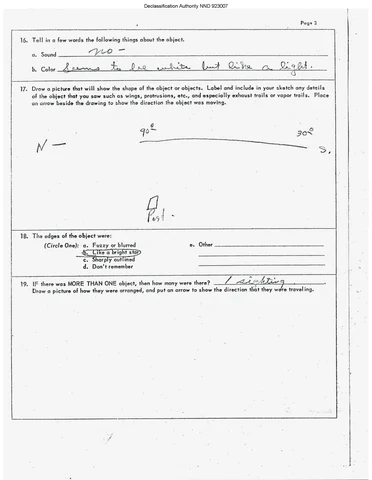 Declassification Authority NND 923007
Page 3
16. Tell in a few words the following things about the object.
a. Sound no -
b. Color Seems to be white but like a light.
17. Draw a picture that will show the shape of the object or objects. Label and include in your sketch any details
of the object that you saw such as wings, protrusions, etc., and especially exhaust trails or vapor trails. Place
an arrow beside the drawing to show the direction the object was moving.
90° 30°
N - S.
Post.
18. The edges of the object were:
(Circle One): a. Fuzzy or blurred e. Other
b. Like a bright star
c. Sharply outlined
d. Don't remember
19. IF there was MORE THAN ONE object, then how many were there? 1 sighting
Draw a picture of how they were arranged, and put an arrow to show the direction that they were traveling.